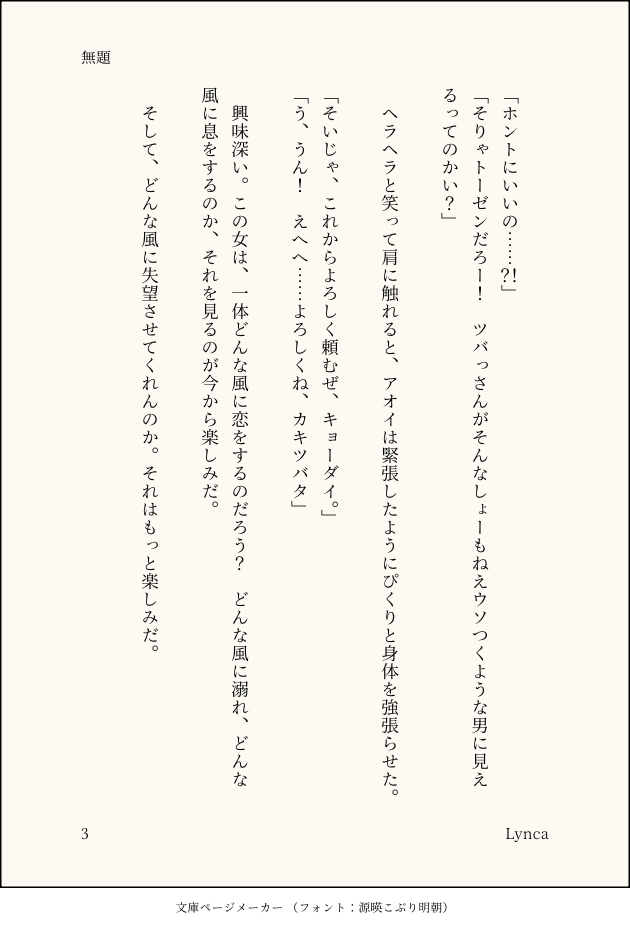 無題
「ホントにいいの……?!」
「そりゃトーゼンだろー！　ツバっさんがそんなしょーもねえウソつくような男に見え
るってのかい？」
　ヘラヘラと笑って肩に触れると、アオイは緊張したようにぴくりと身体を強張らせた。
「そいじゃ、これからよろしく頼むぜ、キョーダイ。」
「う、うん！　えへへ……よろしくね、カキツバタ」
　興味深い。この女は、一体どんな風に恋をするのだろう？　どんな風に溺れ、どんな
風に息をするのか、それを見るのが今から楽しみだ。
　そして、どんな風に失望させてくれんのか。それはもっと楽しみだ。
3
Lynca
文庫ページメーカー （フォント：源暎こぶり明朝）